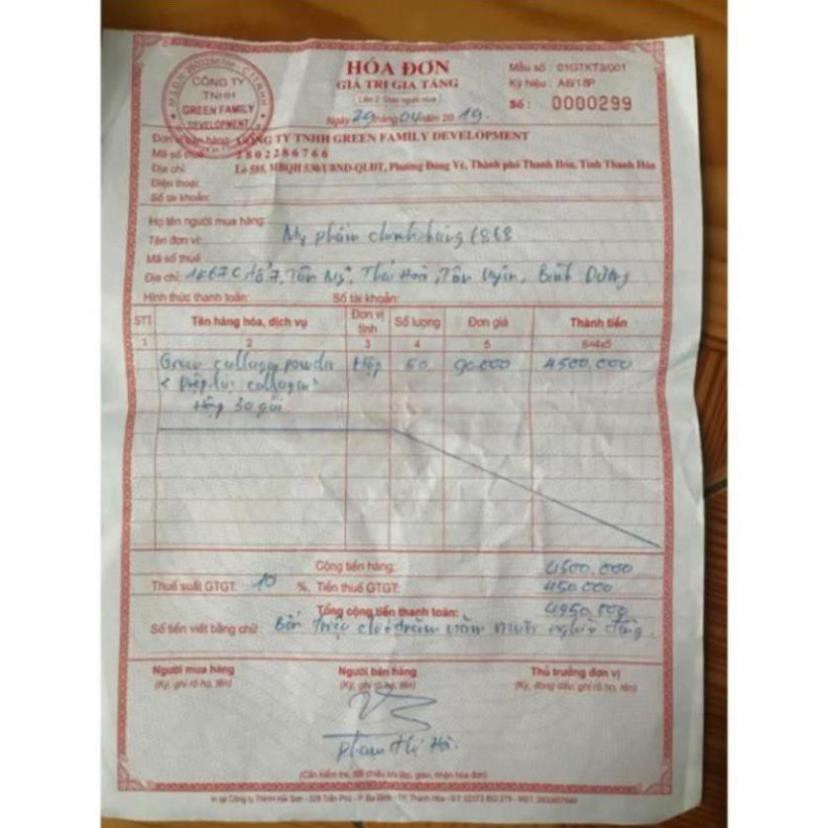 HÓA ĐƠN
GIÁ TRỊ GIA TĂNG
Liên 2: Giao người mua
Ngày 29 tháng 04 năm 2019.
Mẫu số : 01GTKT3/001
Ký hiệu : AB/18P
Số : 0000299
CÔNG TY
TNHH
GREEN FAMILY
DEVELOPMENT
Đơn vị bán hàng: CÔNG TY TNHH GREEN FAMILY DEVELOPMENT
Mã số thuế: 2802286766
Địa chỉ: Lô 585, MBQH 530/UBND-QLĐT, Phường Đông Vệ, Thành phố Thanh Hóa, Tỉnh Thanh Hóa
Điện thoại:
Số tài khoản:
Họ tên người mua hàng:
Tên đơn vị: Mỹ phẩm chính hãng 6868
Mã số thuế:
Địa chỉ: Tân Thái Hoà, Tân Uyên, Bình Dương
Hình thức thanh toán: Số tài khoản:
STT Tên hàng hóa, dịch vụ Đơn vị tính Số lượng Đơn giá Thành tiền
1 2 3 4 5 6=4x5
Green collagen powder Hộp 50 90.000 4500.000
< Diệp lục collagen >
Hộp 30 gói
Cộng tiền hàng: 4500.000
Thuế suất GTGT: 10 %, Tiền thuế GTGT: 450.000
Tổng cộng tiền thanh toán: 4950.000
Số tiền viết bằng chữ: Bốn triệu chín trăm năm mươi nghìn đồng.
Người mua hàng Người bán hàng Thủ trưởng đơn vị
(Ký, ghi rõ họ, tên) (Ký, ghi rõ họ, tên) (Ký, đóng dấu, ghi rõ họ, tên)
Phạm Thị Hà.
(Cần kiểm tra, đối chiếu khi lập, giao, nhận hóa đơn)
In tại Công ty TNHH Hải Sơn - 328 Trần Phú - P. Ba Đình - TP. Thanh Hóa